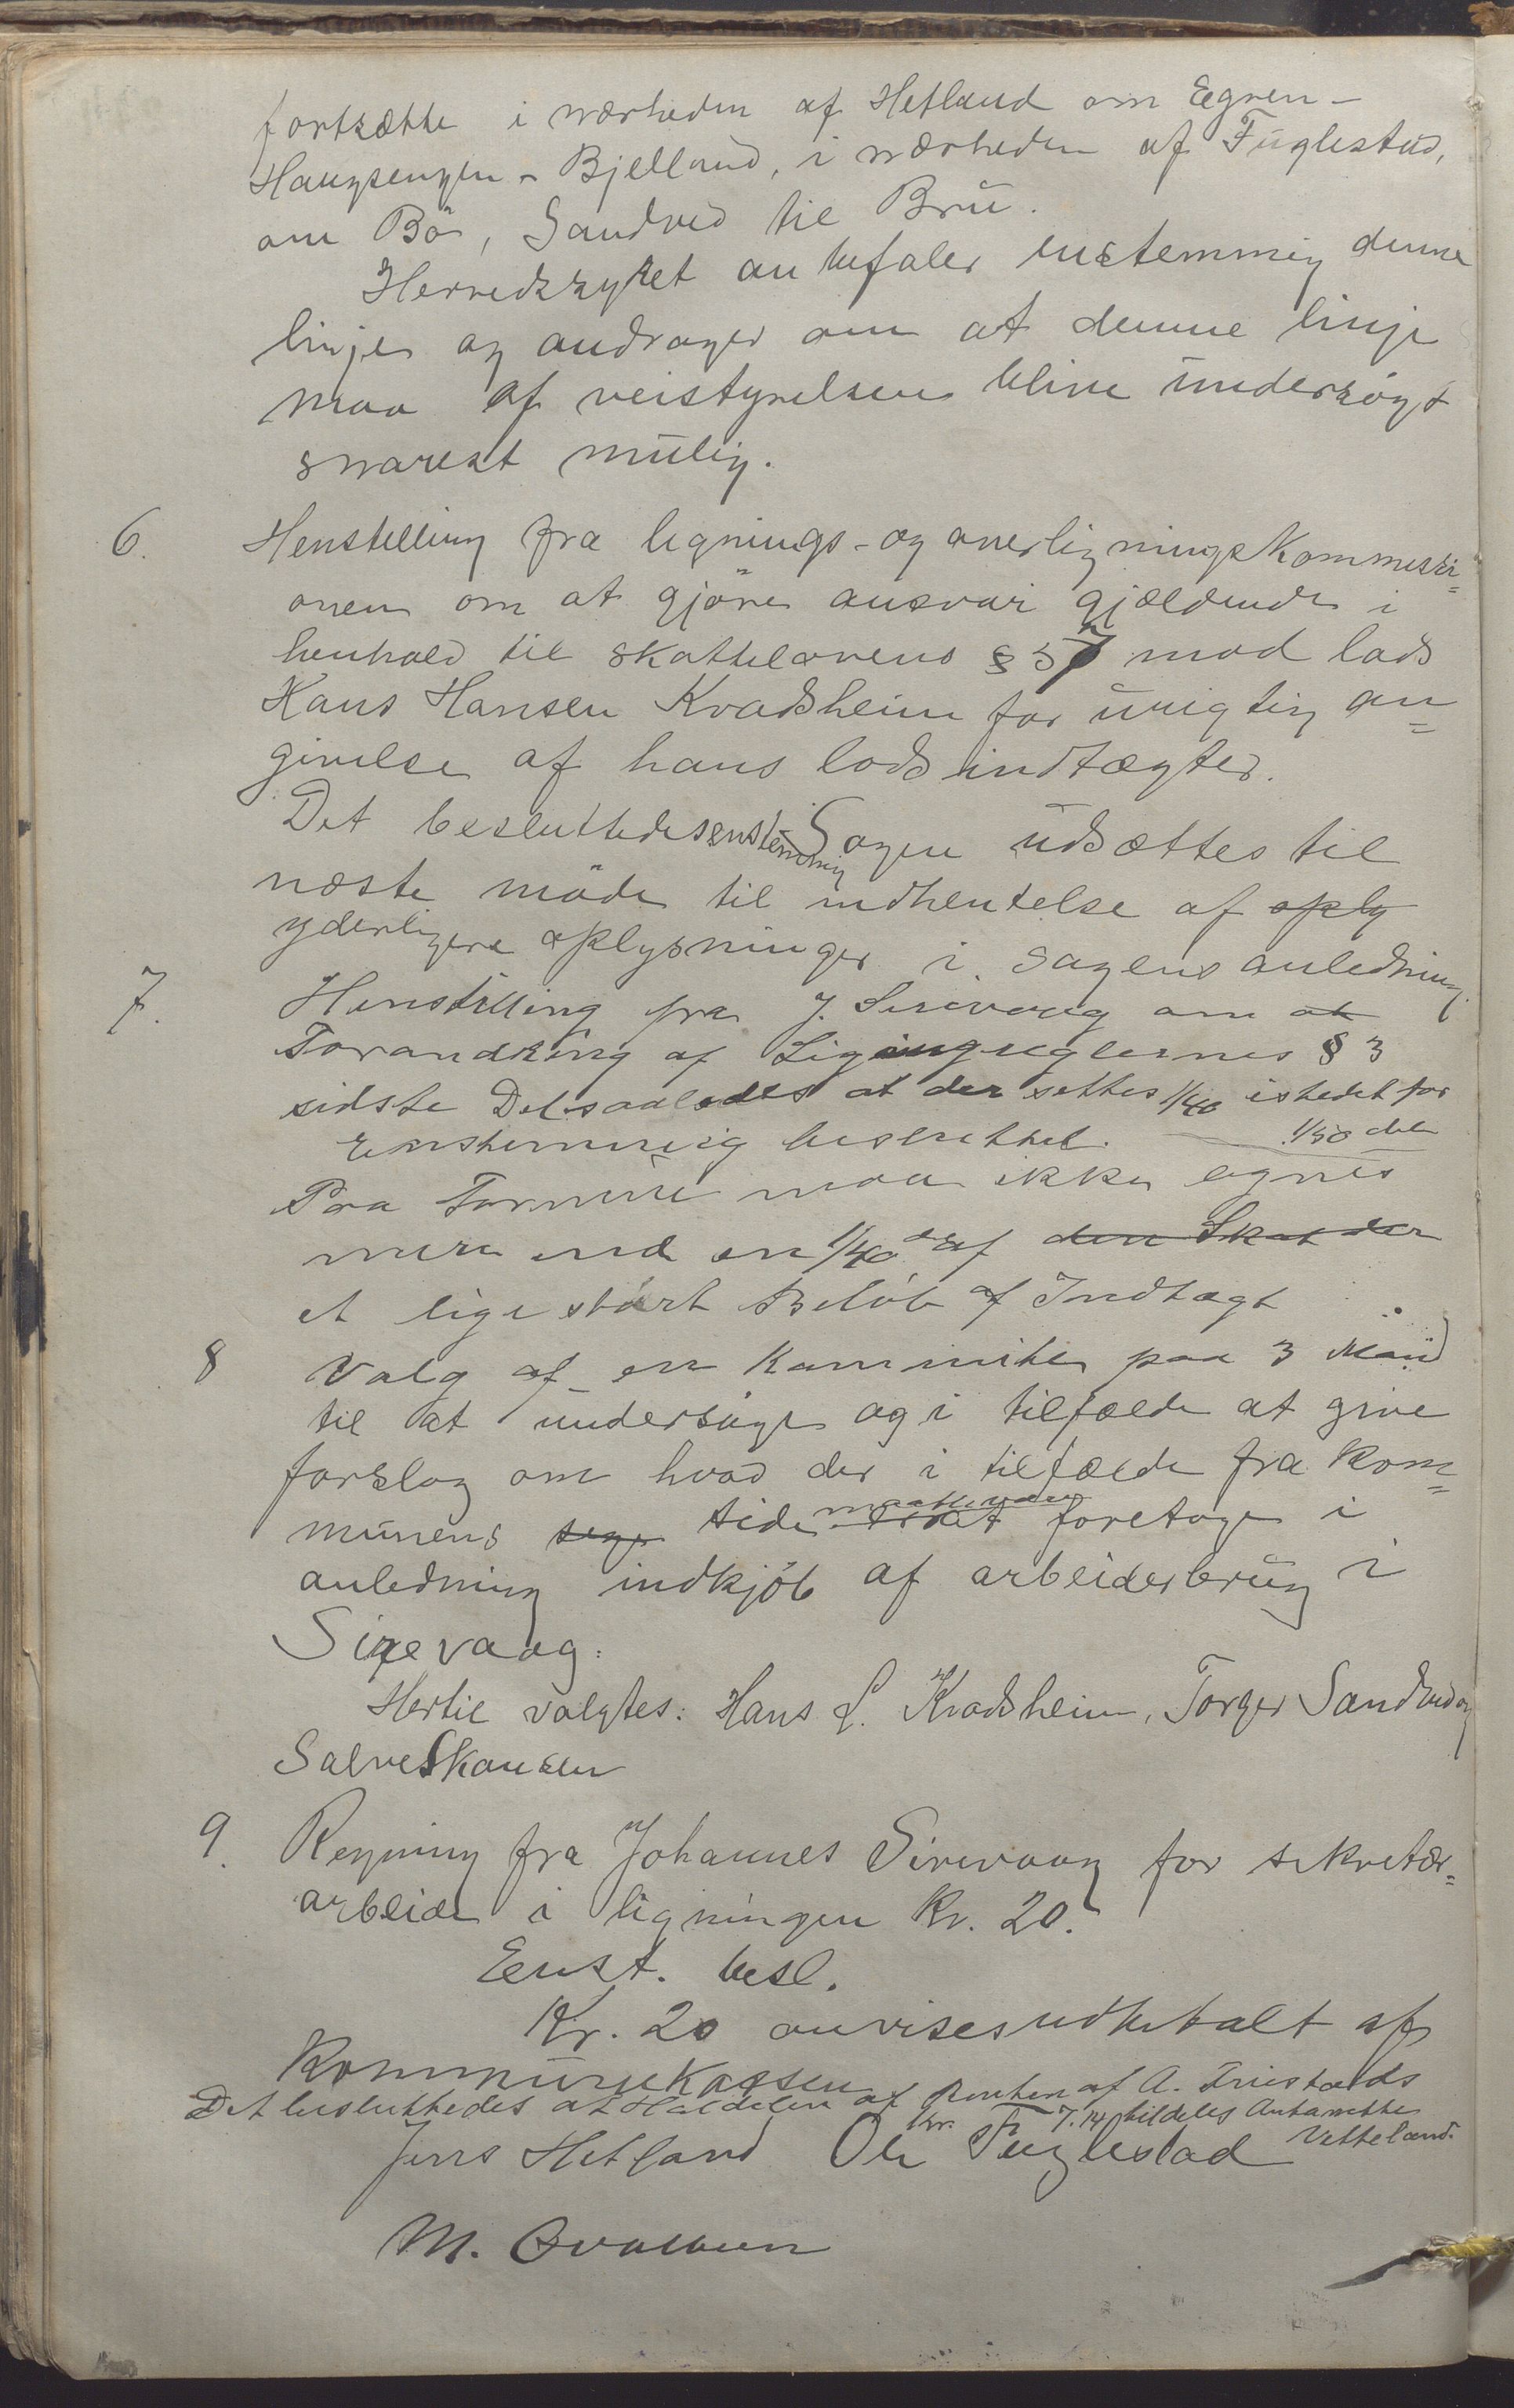 fortsætte i nærheden af Hetland om Egren-
Haugsengen - Bjelland, i nærheden af Fuglestad,
om Bö, Sandved til Bru.
Herredsstyret anbefaler enstemmig denne
linje og andrager om at denne linje
maa af veistyrelsen blive undersögt
snarest mulig.
6. Henstilling fra lignings- og overligningskommissi=
onen om at gjöre ansvar gjældende i
henhold til skattelovens § 57 mod lods
Hans Hansen Kvadsheim for urigtig an=
givelse af hans lodsindtægter.
Det besluttedes enstemmig Sagen udsættes til
næste möde til indhentelse af oply
yderligere oplysninger i sagens anledning.
7. Henstilling fra J. Sirevaag om at
Forandring af Ligingsreglernes § 3
sidste Del saaledes at der settes 1/40 istedet for
1/50 del
Enstemmig besluttet.
Paa Formue maa ikke lignes
mere end en 1/40 del af den Skat der
et lige stort Belöb af Indtægt
8 Valg af en kommite paa 3 Mand
til at undersöge og i tilfælde at give
forslag om hvad der i tilfælde fra kom=
munens side maatte være foretage i
anledning indkjöb af arbeiderbrug i
Sirevaag:
Hertil valgtes: Hans L. Kvadsheim, Torger Sandved og
Salve Skansen
9. Regning fra Johannes Sirevaag for sekretær=
arbeide i ligningen Kr. 20.
Enst. besl.
Kr. 20 anvises udbetalt af
Kommunekassen
Det besluttedes at Halvdelen af Renten af A. Friestads
Kr. 7.14 tildeles Antanette
Vetteland.
Jens Hetland Ole Fuglestad
M. Ovalsen